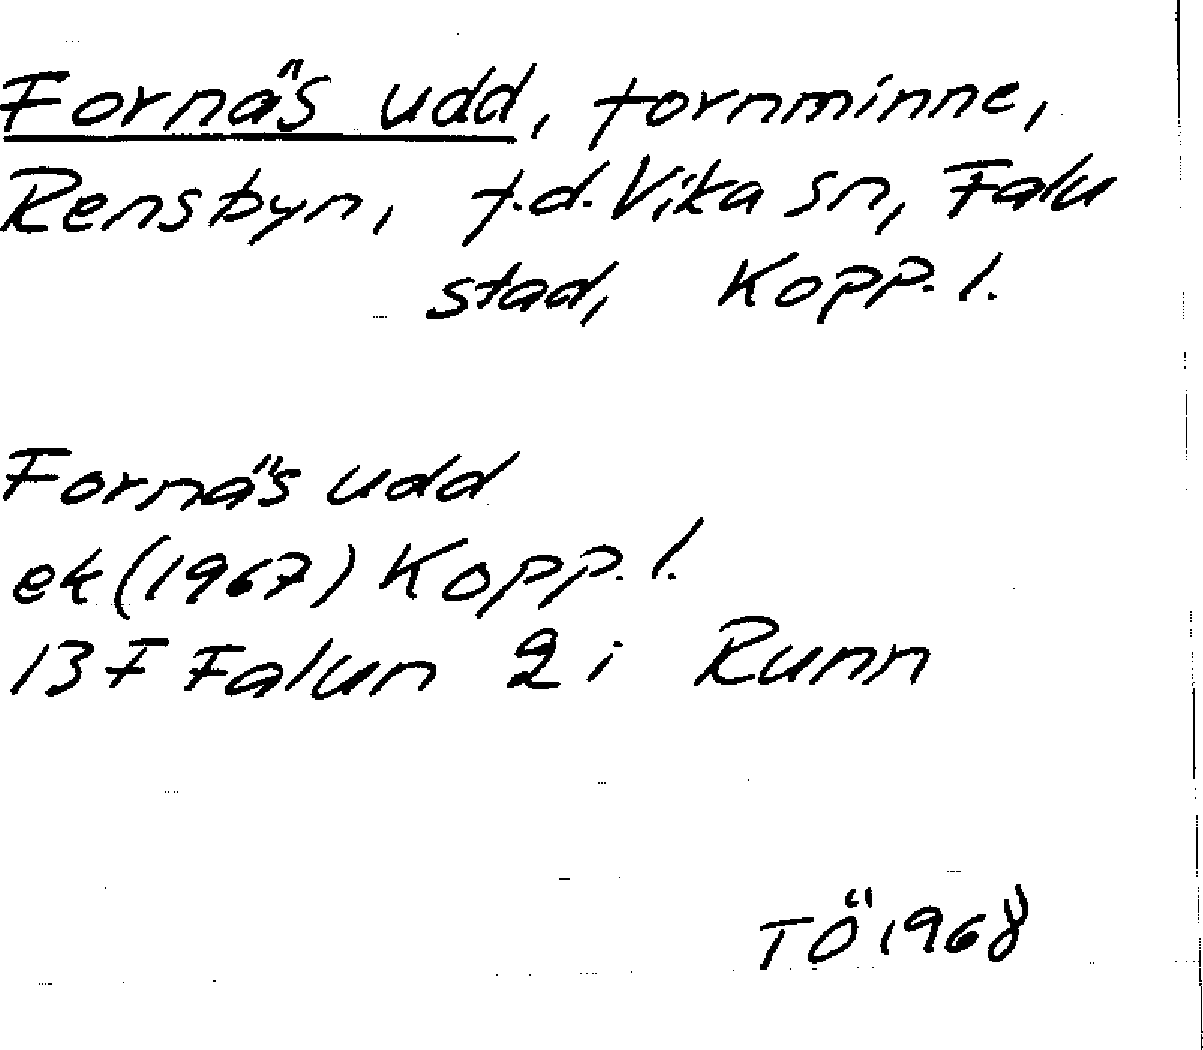 Fornäs udd, fornminne,
Rensbyn, f.d. Vika sn, Falu
stad, Kopp. l.
Fornäs udd
ek (1967) Kopp. l.
13 F Falun 2 i Runn
TÖ 1968